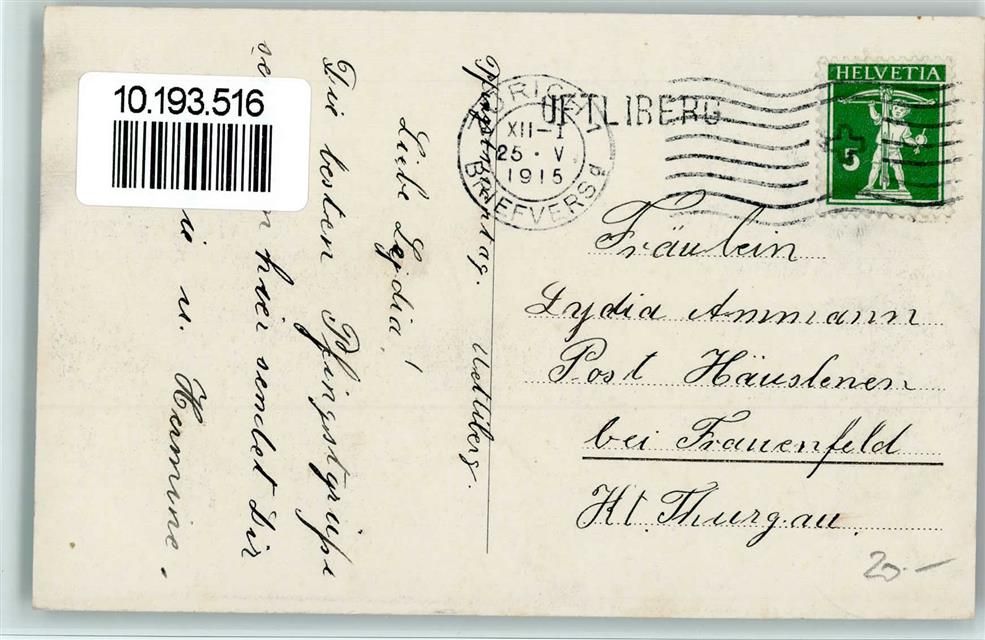 10.193.516
Pfingstmontag. Uetliberg.
Liebe Lydia!
Die besten Pfingstgrüße
hier sendet Dir
u. Hermine.
ZÜRICH 1
XII-1
25.V.
1915
BRIEFVERSd
UETLIBERG
HELVETIA
5
Fräulein
Lydia Ammann
Post Häuslenen
bei Frauenfeld
Kt. Thurgau
20.-